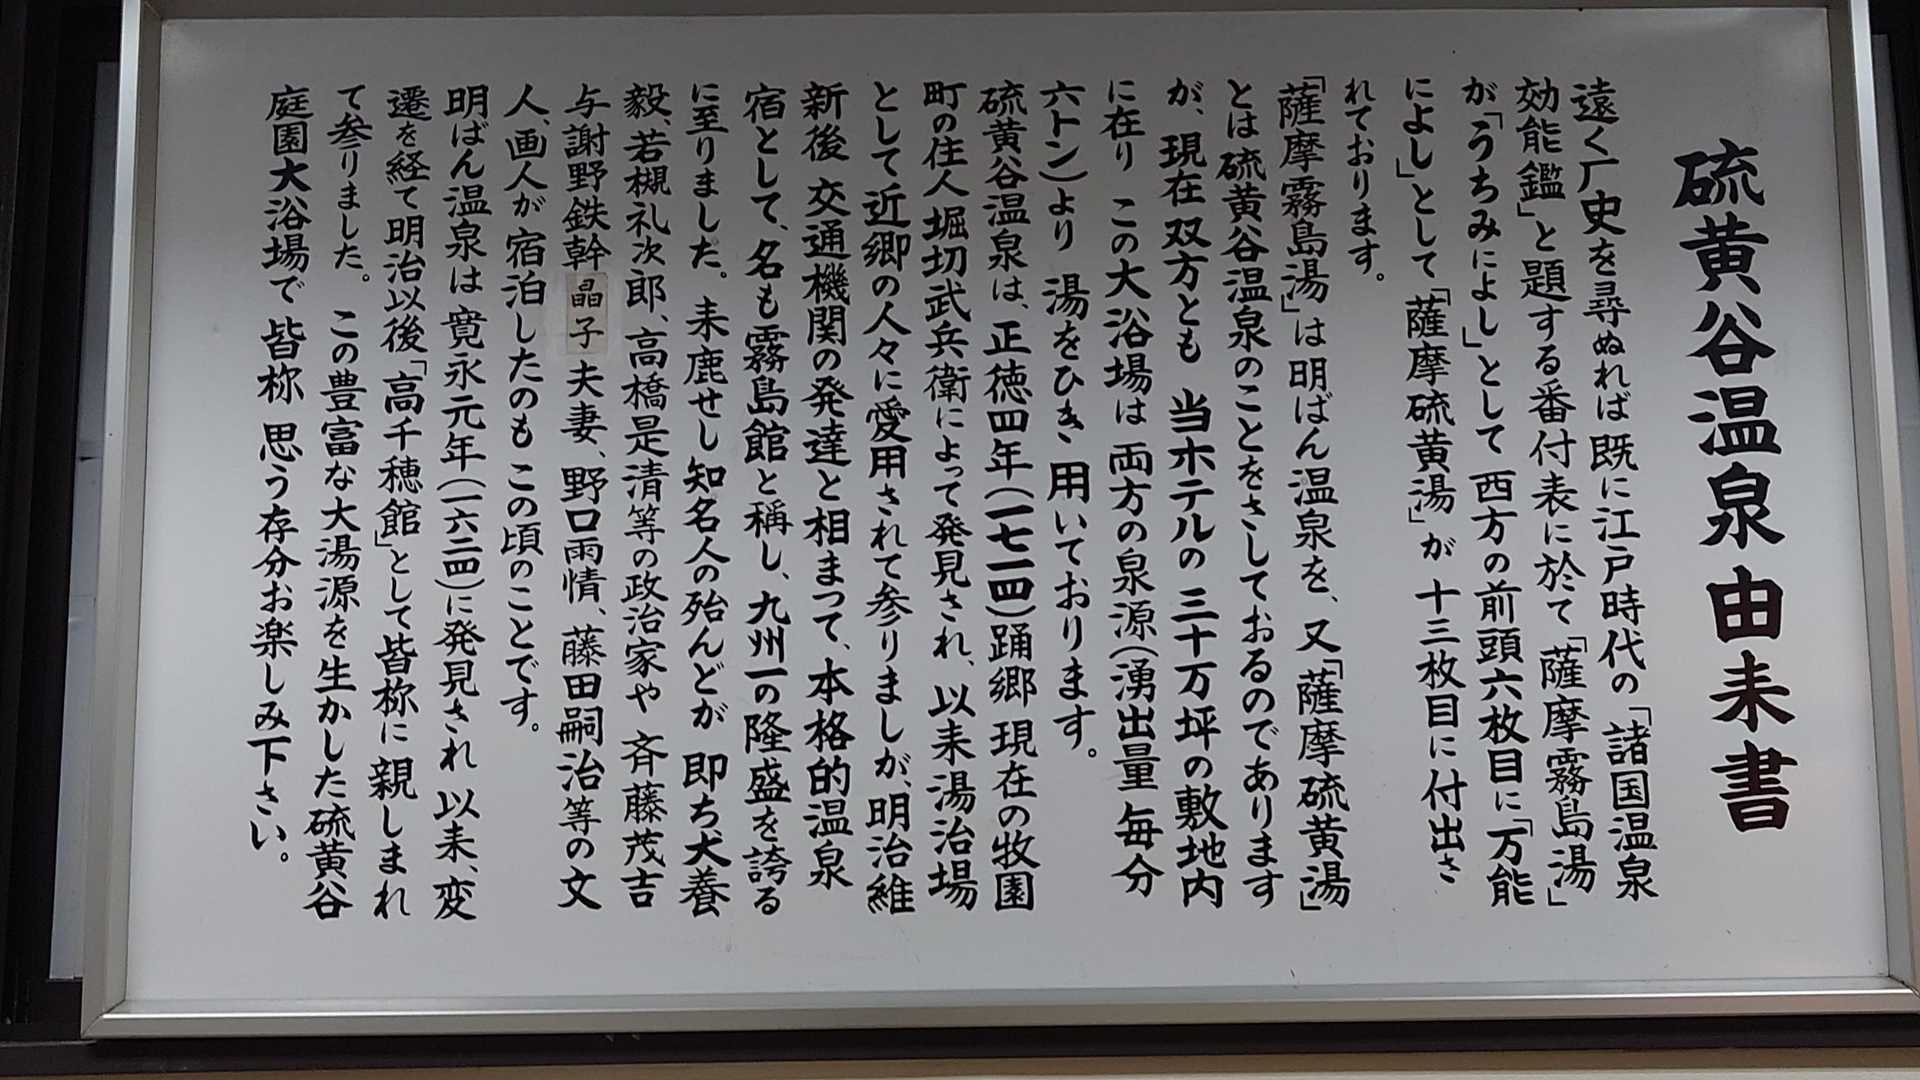 硫黄谷温泉由来書
遠く厂史を尋ぬれば既に江戸時代の「諸国温泉
効能鑑」と題する番付表に於て「薩摩霧島湯」
が「うちみによし」として西方の前頭六枚目に「万能
によし」として「薩摩硫黄湯」が十三枚目に付出さ
れております。
「薩摩霧島湯」は明ばん温泉を、又「薩摩硫黄湯」
とは硫黄谷温泉のことをさしておるのであります
が、現在双方とも 当ホテルの三十万坪の敷地内
に在り この大浴場は両方の泉源(湧出量毎分
六トン)より 湯をひき用いております。
硫黄谷温泉は、正徳四年(一七一四)踊郷現在の牧園
町の住人堀切武兵衛によって発見され、以来湯治場
として近郷の人々に愛用されて参りましが、明治維
新後 交通機関の発達と相まつて、本格的温泉
宿として、名も霧島館と稱し、九州一の隆盛を誇る
に至りました。来鹿せし知名人の殆んどが 即ち犬養
毅、若槻礼次郎、高橋是清等の政治家や 斉藤茂吉
与謝野鉄幹晶子夫妻、野口雨情、藤田嗣治等の文
人、画人が宿泊したのもこの頃のことです。
明ばん温泉は寛永元年(一六二四)に発見され以来、変
遷を経て明治以後「高千穂館」として皆祢に親しまれ
て参りました。この豊富な大湯源を生かした硫黄谷
庭園大浴場で皆祢 思う存分お楽しみ下さい。